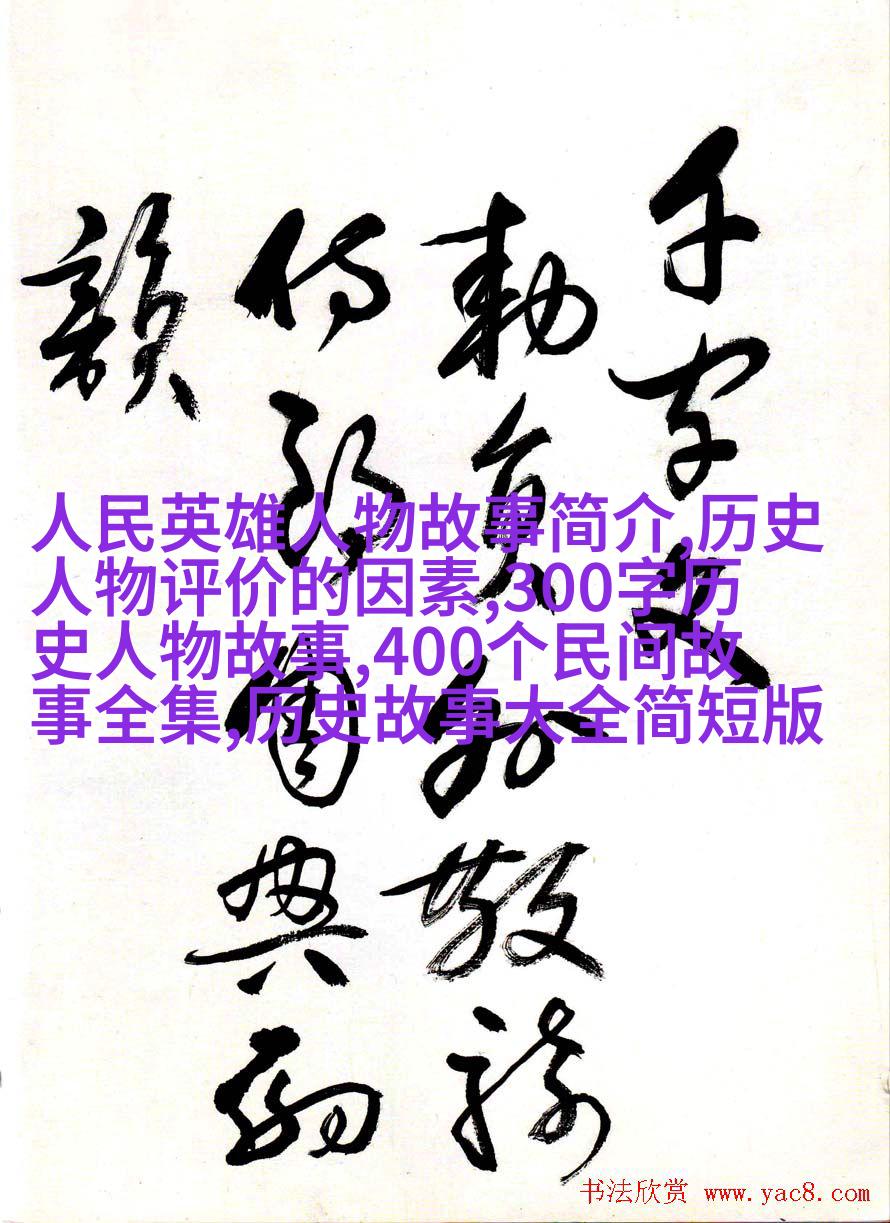 千字文
勅員外散騎
侍郎周興嗣
韻
人民英雄人物故事简介,历史
人物评价的因素,300字历
史人物故事,400个民间故
事全集,历史故事大全简短版
书法欣赏 www.yac8.com